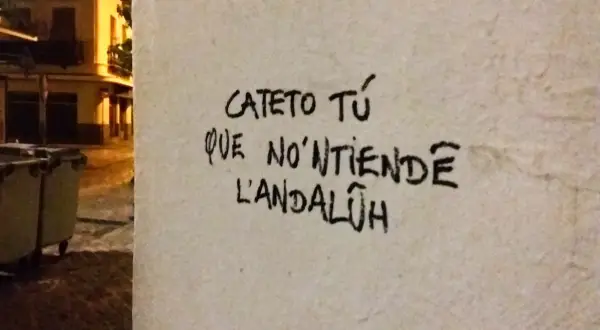 CATETO TÚ
QUE NO'NTIENDÊ
L'ANDALÛH